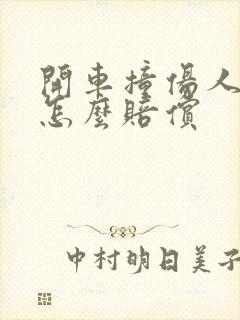 開車撞傷人
怎麼賠償
中村明日美子